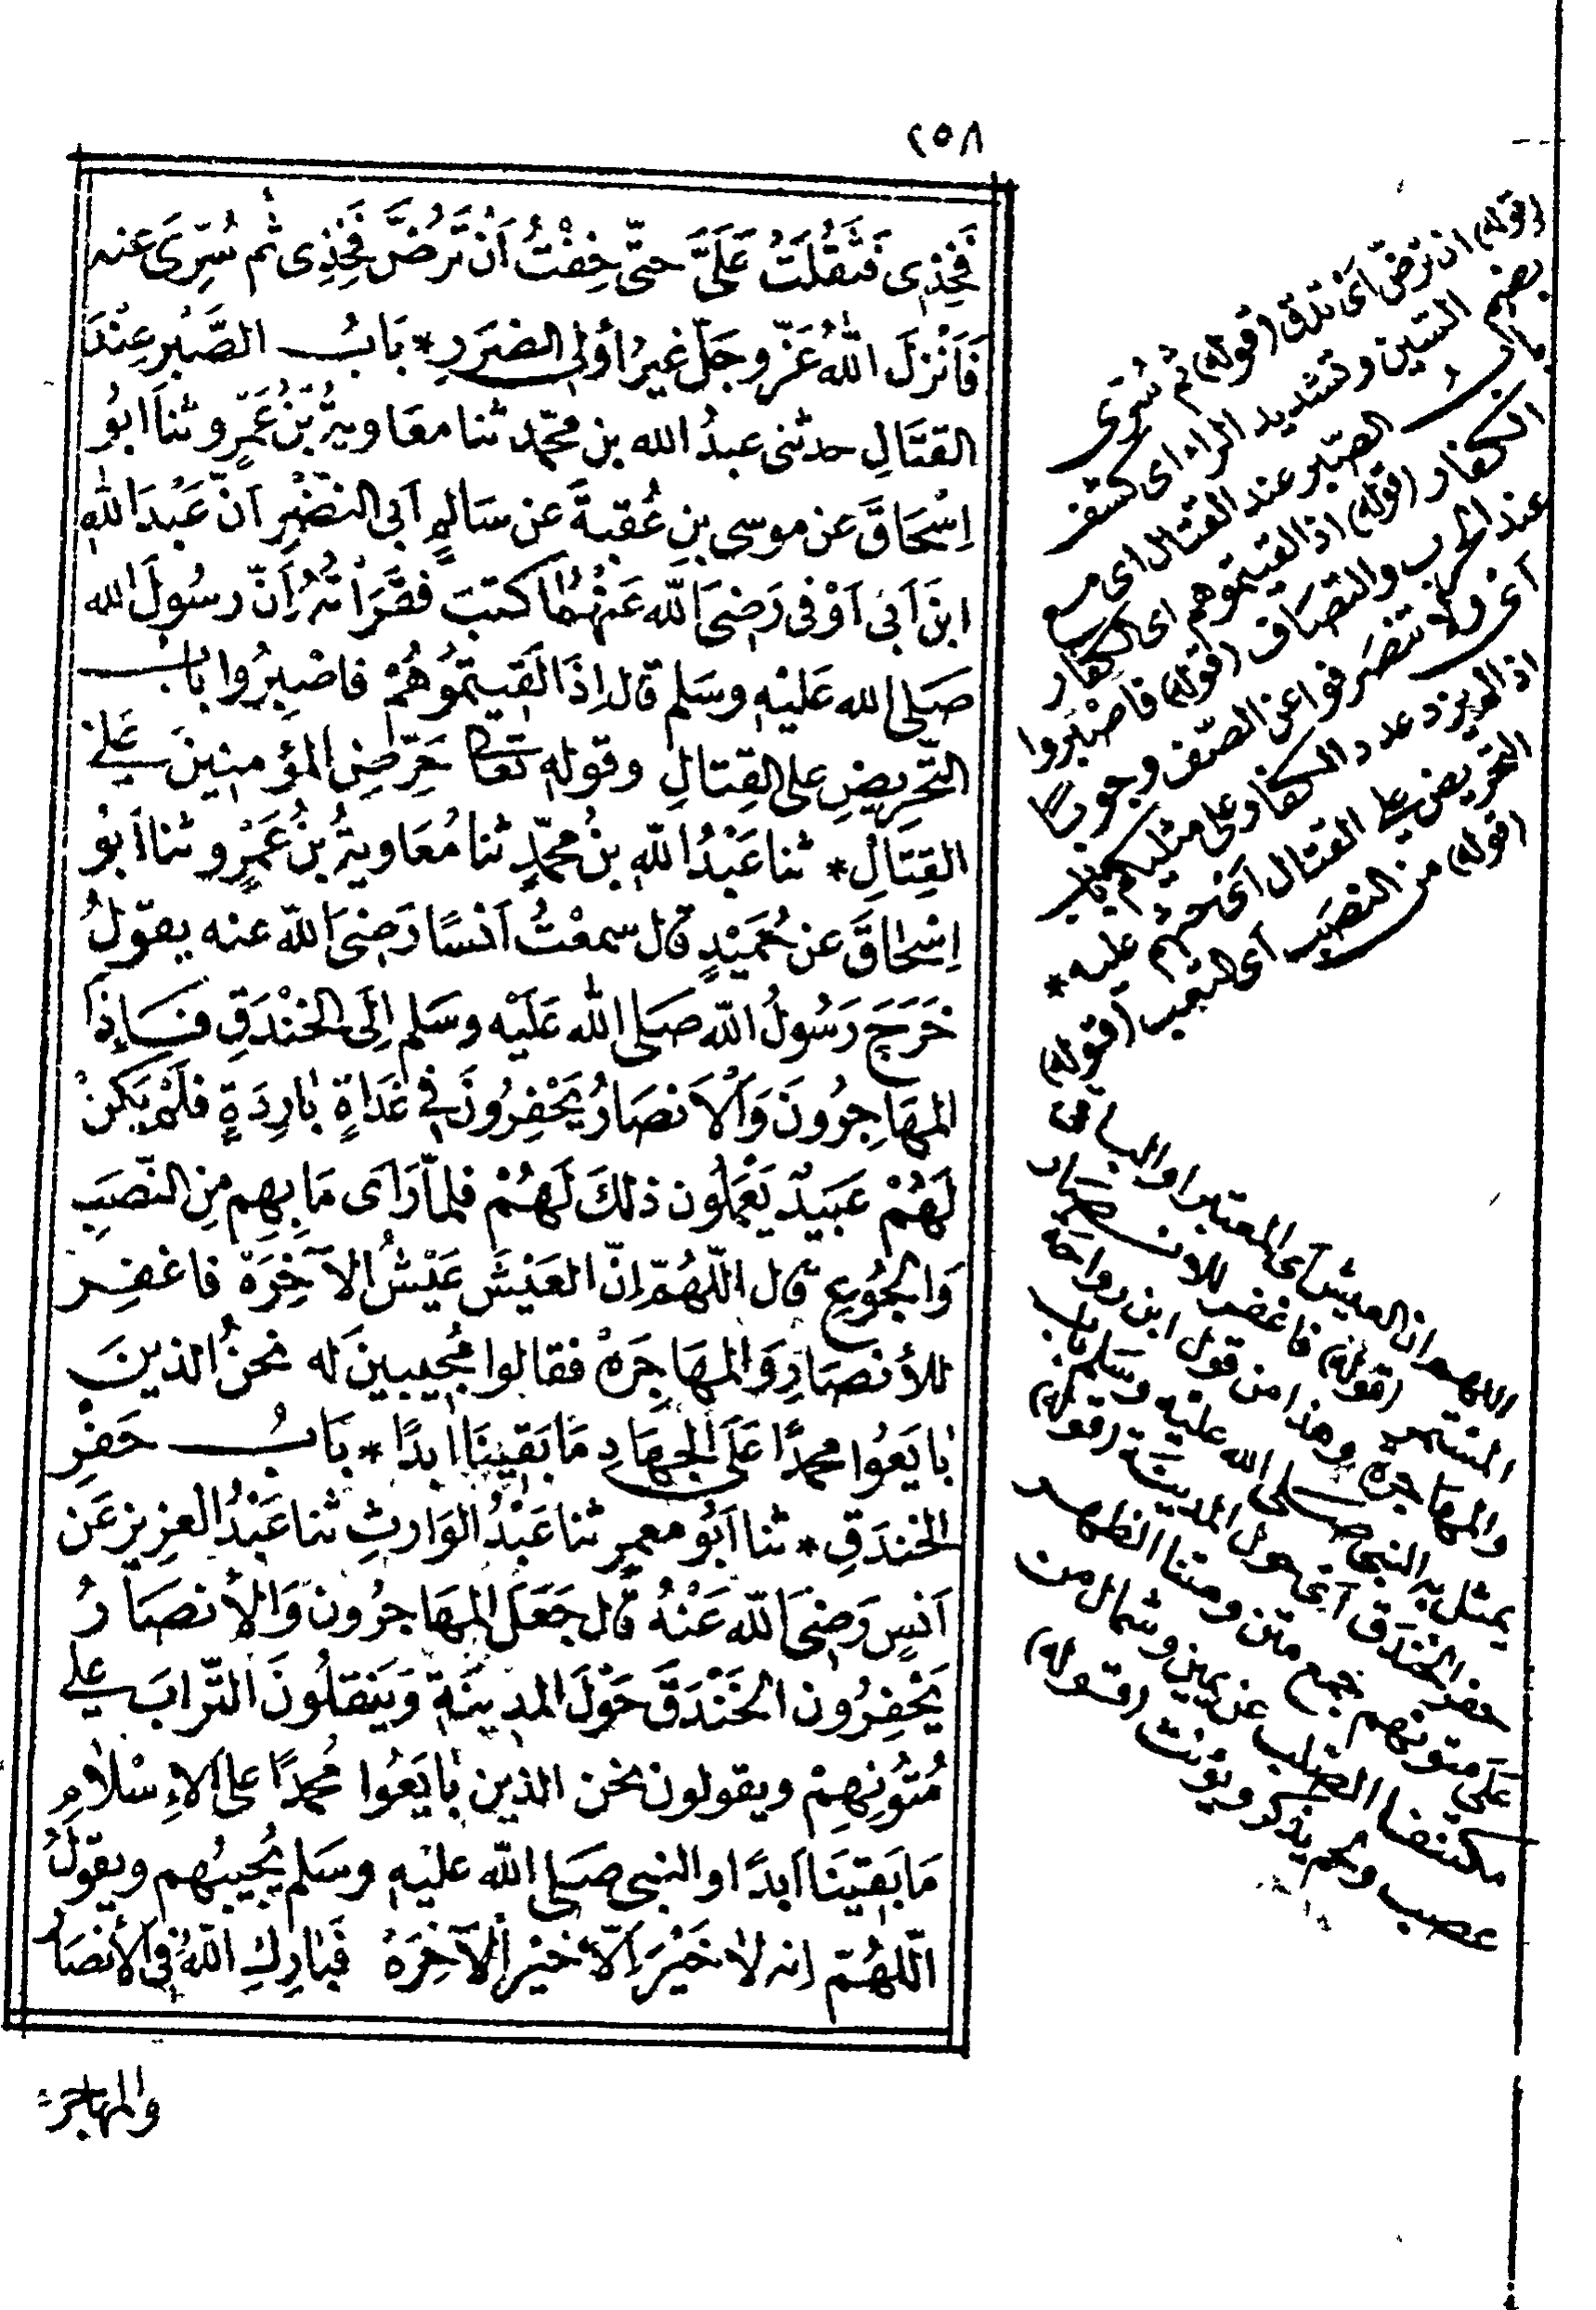 ٢٥٨
فَخِذِى فَثَقُلَتْ عَلَىَّ حتّى خِفْتُ اَنْ تَرُضَّ فَخِذِى ثم سُرِّىَ عنه
فَاَنْزَلَ اللهُ عَزّ وجَلّ غيرُ أولى الضرَرِ * بَابُ الصَّبْرِ عِنْدَ
القتَالِ حدثنى عبدُ الله بن محمّد ثنا معَاويةُ بْنُ عَمْرٍو ثنا اَبوُ
اِسْحَاقَ عن موسى بنِ عُقبةَ عن سَالمٍ اَبى النضْرِ اَنّ عَبْدَ اللهِ
ابنَ اَبى اَوْفى رَضىَ اللّه عَنْهُمَا كتبَ فقَرَأتُهُ اَِنّ رسُولَ الله
صَلى الله عَليْهِ وسَلم قال اِذَا لَقيتمُوُهُمْ فاصْبِرُوا بابُ
التّحرِيضِ على القِتالِ وقولهِ تعَالى حَرّضِ المؤمنينَ على
القِتَالِ * ثنا عَبْدُ اللّهِ بنُ محمّدٍ ثنا مُعَاويةُ بْنُ عَمْرٍو ثنا اَبوُ
اِسْحَاقَ عن حُمَيْدٍ قال سمعْتُ اَنسًا رَضىَ اللّه عنه يقوّلُ
خَرَجَ رَسُولُ اللّه صَلى اللهُ عَلَيْه وسَلم اِلَى الخَنْدَقِ فَاِذَا
المهَاجِرُونَ وَالْاَنصَارُ يَحْفِرُونَ فى غَدَاةٍ بَارِدَةٍ فلَمْ يَكنْ
لَهُمْ عَبيدٌ يَعْمَلُون ذلكَ لَهُمْ فلمّا رَاَى مَا بِهِم مِنَ النّصَبِ
وَالجُوُعِ قال اللّهُمّ اِنّ العَيْشَ عَيْشُ الآخِرَة فاغفِر
للأنصَارِ وَالمهَاجِرَهْ فقالوا مُجيبينَ له نحنُ الذينَ
بَايَعُوا محمدًا عَلَى الجهَادِ مَا بَقينَا ابدًا * بَابُ حَفْرِ
الخندَقِ * ثنا اَبُو معمرٍ ثنا عَبْدُ الوَارثِ ثنا عَبْدُ العزيز عَن
اَنسٍ رَضىَ اللّه عَنْهُ قال جَعَلَ المهَاجرُون وَالأنصَارُ
يَحْفِرُون الخَنْدَقَ حَوْلَ المدينَةِ وَيَنقلُونَ التّرابَ على
مُتوُنِهِمْ ويقولون نحن الذين بَايَعُوا مُحمدًا على الاِسْلَامِ
مَا بَقيَنَا اَبدًا والنبى صَلى اللّه عليْهِ وسَلم يُجيبُهم ويقولُ
اللّهُمّ انه لا خَيْرَ اِلّا خيْرُ الآخِرَهْ فَبَارِكِ اللّهُ فى الأنصَارِ
والمهَاجرَهْ
(قوله) ان ترضّ اَى تدق (قوله) ثم سُرّى
بضم السّين وتشديد الراء اى كشف
باب الصّبر عند القتال اى مع
الكفار (قوله) اذا لقيتموهم اى الكفار
عند الحرب والتصَاف (قوله) فاصْبروا
اَى ولا تنصَرفوا عن الصّف وجوبًا
اذا لم يزد عدد الكفار على مثليكم باب
التحريض على القتال اَى حثهم عليه *
(قوله) من النصَبِ اَى التعب (قوله)
اللهم ان العيش اَى المعتبر او الباقى
المستمر (قوله) فاغفر للانصَار
والمهَاجرَهْ وهذا من قول ابن روَاحَة
يمثل به النبى صلى الله عليه وسَلم باب
حفر الخندَق اَى حول المدينَة (قوله)
عَلَى متونهم جمع متن ومتنا الظهر
مكتنفا الصّلب عن يمين وشمال من
عصب ولحم يذكر ويؤنث (قوله)